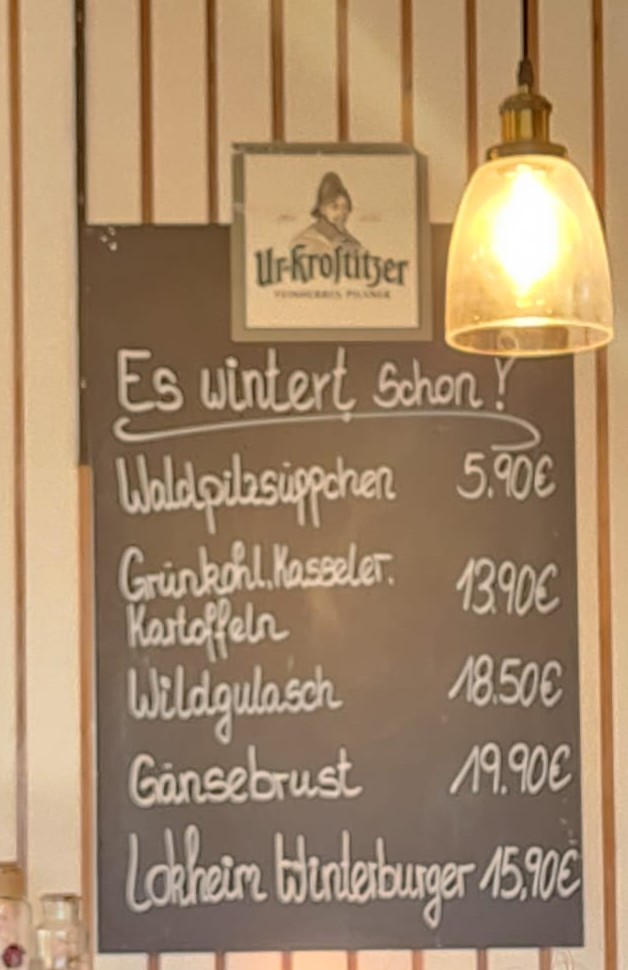 Ur-Krostitzer
FEINHERBES PILSNER
Es wintert schon!
Waldpilzsüppchen 5.90€
Grünkohl, Kasseler,
Kartoffeln 13.90€
Wildgulasch 18.50€
Gänsebrust 19.90€
Lokheim Winterburger 15,90€